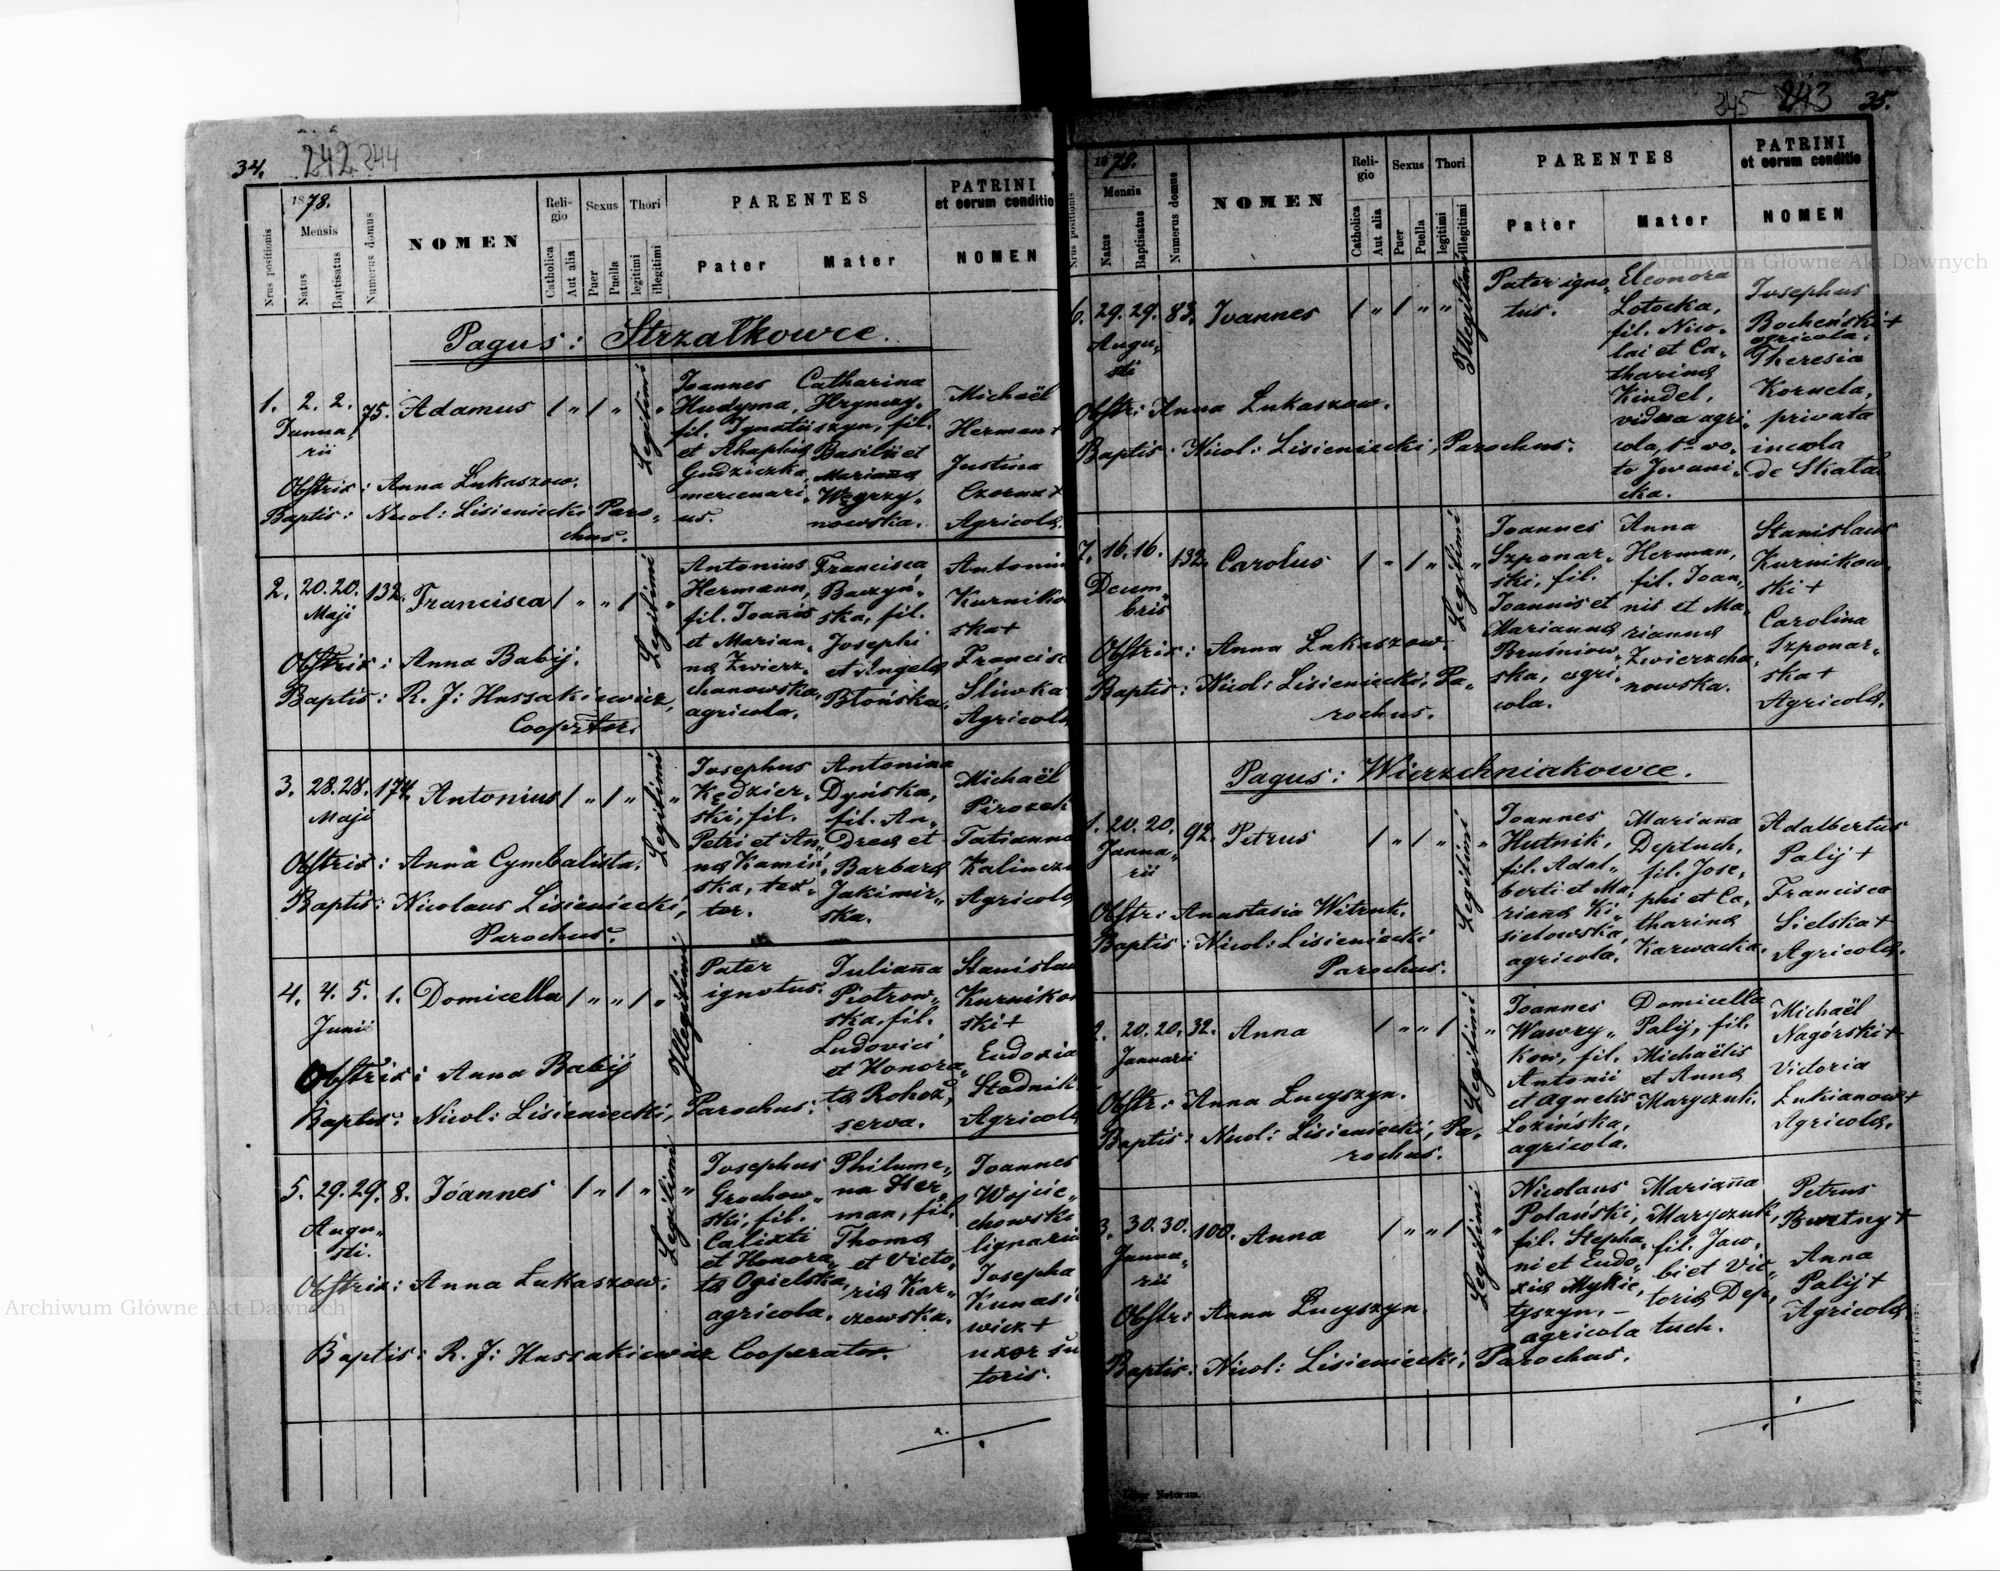 34. 242 244
1878.
Nrus positionis
Mensis
Natus
Baptisatus
Numerus domus
NOMEN
Religio
Catholica
Aut alia
Sexus
Puer
Puella
Thori
legitimi
illegitimi
PARENTES
Pater
Mater
PATRINI
et eorum conditio
NOMEN
Pagus: Strzałkowce.
1. 2. 2. 75. Adamus / „ / „ Legitimi „
Janua„
rii
Joannes
Hudyma,
fil. Ignatii
et Ahaphiæ
Gudziczka,
mercenari„
us.
Catharina
Hrynczy„
szyn, fil.
Basilii et
Mariannæ
Węgrzy„
nowska.
Michaël
Herman +
Justina
Czorna +
Agricolæ.
Obstrix: Anna Łukaszow.
Baptis: Nicol: Lisieniecki Paro„
chus.
2. 20. 20. 132. Francisca / „ „ / Legitimi „
Maji
Antonius
Hermann,
fil. Joanis
et Marian„
næ Zwierz„
chanowska,
agricola.
Francisca
Baczyń„
ska, fil.
Josephi
et Angelæ
Błońska.
Antonin
Kurniko
ska +
Francisc
Sliwka
Agricolæ
Obstrix: Anna Babij.
Baptis: R. J: Hussakiewicz,
Cooptor.
3. 28. 28. 174. Antonius / „ / „ Legitimi „
Maji
Josephus
Kędzier„
ski, fil.
Petri et An„
næ Kamiń„
ska, tex„
tor.
Antonina
Dyńska,
fil. An„
dreæ et
Barbaræ
Jakimir„
ska.
Michaël
Pirozek
Tatianna
Kalincz
Agricolæ
Obstrix: Anna Cymbalista.
Baptis: Nicolaus Lisieniecki,
Parochus.
4. 4. 5. 1. Domicella / „ „ / „ Illegitimi
Junii
Pater
ignotus.
Julianna
Piotrow„
ska, fil.
Ludovici
et Honora„
tæ Rohoz,
serva.
Stanislau
Kurnikow
ski +
Eudoxia
Stadnik
Agricolæ
Obstrix: Anna Babij
Baptis: Nicol: Lisieniecki, Parochus:
5. 29. 29. 8. Joannes / „ / „ Legitimi „
Augu„
sti.
Josephus
Grochow„
ski, fil.
Calixti
et Honora„
tæ Ogielska,
agricola.
Philome„
na Her„
man, fil.
Thomæ
et Victo„
riæ Kar„
czewska.
Joannes
Wojcie„
chowski
lignariu
Josepha
Kunasi
wicz +
uxor su
toris.
Obstrix: Anna Łukaszow.
Baptis: R. J: Hussakiewicz Cooperator.
245 243 35.
1878.
Nrus positionis
Mensis
Natus
Baptisatus
Numerus domus
NOMEN
Religio
Catholica
Aut alia
Sexus
Puer
Puella
Thori
legitimi
illegitimi
PARENTES
Pater
Mater
PATRINI
et eorum conditio
NOMEN
6. 29. 29. 83. Joannes / „ / „ „ Illegitimi
Augu„
sti
Pater igno„
tus.
Eleonora
Łotocka,
fil. Nico„
lai et Ca„
tharinæ
Kindel,
vidua agri„
cola, 1º vo„
to Iwani„
cka.
Josephus
Bocheński +
agricola;
Theresia
Kornela,
privata
incola
de Skała
Obstr: Anna Łukaszow.
Baptis: Nicol: Lisieniecki, Parochus.
7. 16. 16. 132. Carolus / „ / „ Legitimi „
Decem„
bris
Joannes
Szponar„
ski, fil.
Joannis et
Mariannæ
Bruśniow„
ska, agri„
cola.
Anna
Herman,
fil. Joan„
nis et Ma„
riannæ
Zwierzcha„
nowska.
Stanislaus
Kurnikow„
ski +
Carolina
Szponar„
ska +
Agricolæ.
Obstrix: Anna Łukaszow.
Baptis: Nicol: Lisieniecki, Pa„
rochus.
Pagus: Wierzchniakowce.
1. 20. 20. 92. Petrus / „ / „ Legitimi „
Janua„
rii
Joannes
Hutnik,
fil. Adal„
berti et Ma„
riannæ Ki„
sielowska,
agricola.
Marianna
Deptuch,
fil. Jose„
phi et Ca„
tharinæ
Karwacka.
Adalbertus
Palij +
Francisca
Sielska +
Agricolæ.
Obstr: Anastasia Witruk.
Baptis: Nicol: Lisieniecki
Parochus.
2. 20. 20. 32. Anna / „ „ / Legitimi „
Januarii
Joannes
Wawrzy„
kow, fil.
Antonii
et Agnetis
Łozińska,
agricola.
Domicella
Palij, fil.
Michaëlis
et Annæ
Maryczuk.
Michaël
Nagórski +
Victoria
Łukianow +
Agricolæ.
Obstr: Anna Lucyszyn.
Baptis: Nicol: Lisieniecki, Pa„
rochus.
3. 30. 30. 100. Anna / „ „ / Legitimi „
Janua„
rii
Nicolaus
Polański,
fil. Stepha„
ni et Eudo„
xiæ Mykie„
tyszyn, –
agricola
Marianna
Maryczuk,
fil. Jaw„
bi et Vic„
toriæ Dep„
tuch.
Petrus
Burtny +
Anna
Palij +
Agricolæ.
Obstr: Anna Lucyszyn.
Baptis: Nicol: Lisieniecki, Parochus.
Liber Natorum.
Archiwum Główne Akt Dawnych
Archiwum Główne Akt Dawnych